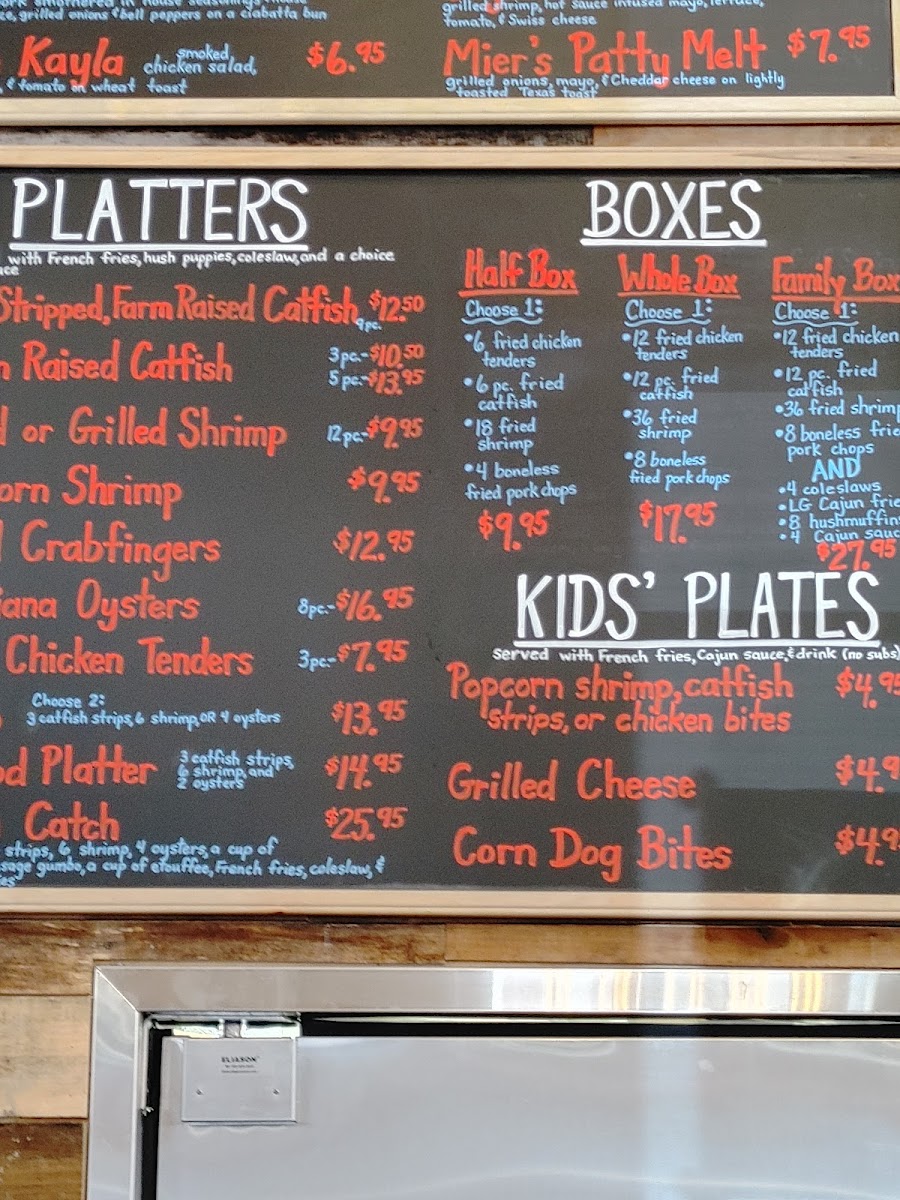 grilled onions & bell peppers on a ciabatta bun
Kayla smoked chicken salad, $6.95
& tomato on wheat toast
grilled shrimp, hot sauce infused mayo, lettuce,
tomato, & Swiss cheese
Mier's Patty Melt $7.95
grilled onions, mayo, & Cheddar cheese on lightly
toasted Texas toast
PLATTERS
with French fries, hush puppies, coleslaw, and a choice
Stripped, Farm Raised Catfish 9pc. $12.50
Raised Catfish 3pc.-$10.50
5pc.-$13.95
or Grilled Shrimp 12pc-$9.95
orn Shrimp $9.95
Crabfingers $12.95
iana Oysters 8pc.-$16.95
Chicken Tenders 3pc-$7.95
Choose 2:
3 catfish strips, 6 shrimp, OR 4 oysters $13.95
od Platter 3 catfish strips, 6 shrimp, and 2 oysters $14.95
Catch $25.95
strips, 6 shrimp, 4 oysters, a cup of
sage gumbo, a cup of etouffee, French fries, coleslaw, &
BOXES
Half Box
Choose 1:
•6 fried chicken
tenders
•6 pc. fried
catfish
•18 fried
shrimp
•4 boneless
fried pork chops
$9.95
Whole Box
Choose 1:
•12 fried chicken
tenders
•12 pc. fried
catfish
•36 fried
shrimp
•8 boneless
fried pork chops
$17.95
Family Box
Choose 1:
•12 fried chicken
tenders
•12 pc. fried
catfish
•36 fried shrimp
•8 boneless frie
pork chops
AND
•4 coleslaws
•LG Cajun frie
•8 hushmuffins
•4 Cajun sauc
$27.95
KIDS' PLATES
Served with French fries, Cajun sauce, & drink (no subs)
Popcorn shrimp, catfish $4.95
strips, or chicken bites
Grilled Cheese $4.9
Corn Dog Bites $4.9
ELIASON